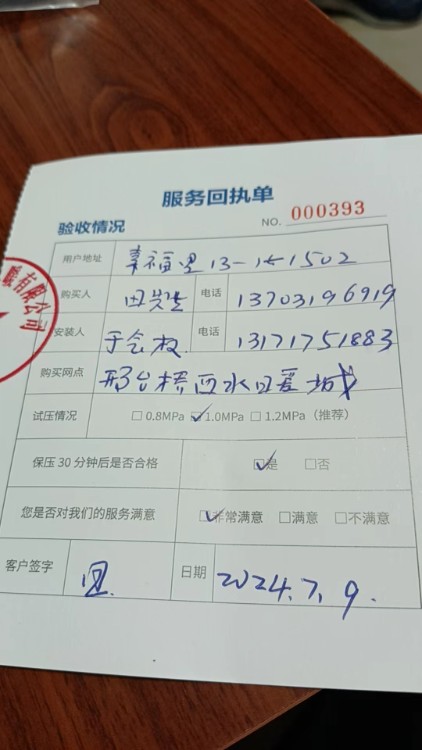 服务回执单
验收情况 NO. 000393
用户地址 幸福里13-1-1502
购买人 田 电话 13703196919
安装人 于会权 电话 13171751883
购买网点 邢台桥西水口暖城
试压情况 □ 0.8MPa ☑ 1.0MPa □ 1.2MPa（推荐）
保压 30 分钟后是否合格 ☑是 □否
您是否对我们的服务满意 ☑非常满意 □满意 □不满意
客户签字 日期 2024.7.9.
有限公司